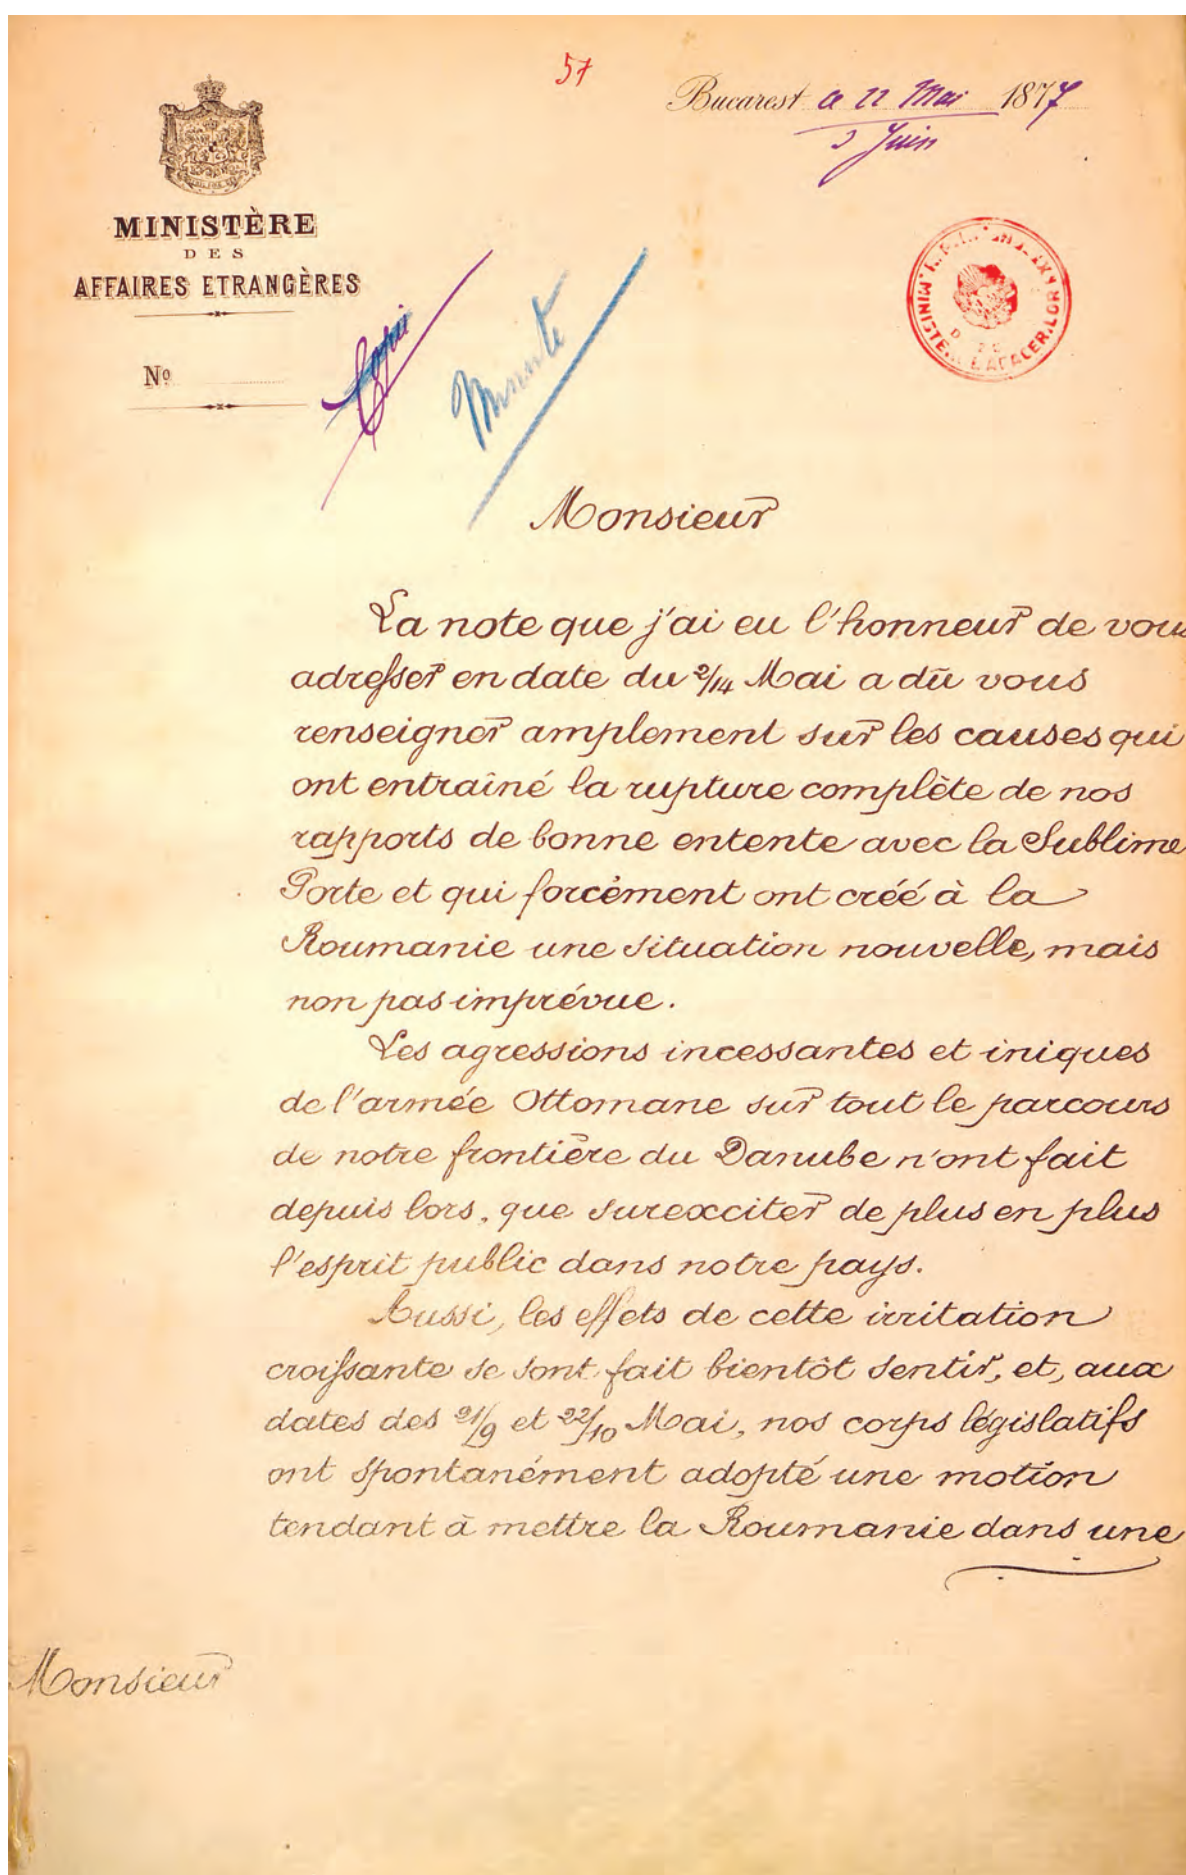 57
Bucarest ce 22 Mai 1877
3 Juin
MINISTÈRE
DES
AFFAIRES ETRANGÈRES
Nº
Copie
Minute
Monsieur
La note que j'ai eu l'honneur de vous
adresser en date du 2/14 Mai a dû vous
renseigner amplement sur les causes qui
ont entraîné la rupture complète de nos
rapports de bonne entente avec la Sublime
Porte et qui forcément ont créé à la
Roumanie une situation nouvelle, mais
non pas imprévue.
Les agressions incessantes et iniques
de l'armée Ottomane sur tout le parcours
de notre frontière du Danube n'ont fait
depuis lors, que surexciter de plus en plus
l'esprit public dans notre pays.
Aussi, les effets de cette irritation
croissante se sont fait bientôt sentir, et, aux
dates des 21/9 et 22/10 Mai, nos corps législatifs
ont spontanément adopté une motion
tendant à mettre la Roumanie dans une
Monsieur